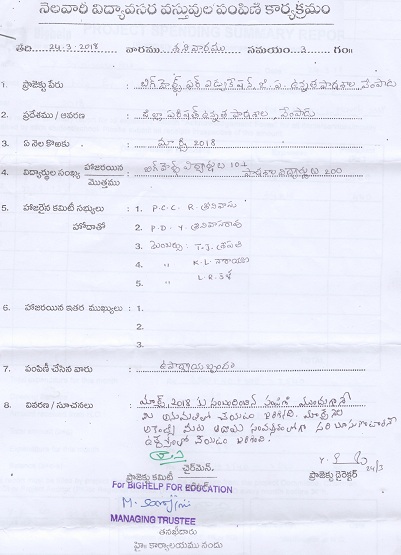 నెలవారీ విద్యావసర వస్తువుల పంపిణీ కార్యక్రమం
తేది. 24-3-2018 వారము శనివారము సమయం 3 గం॥
1. ప్రాజెక్టు పేరు : బిగ్ హెల్ప్ ఫర్ ఎడ్యుకేషన్ జి.ప. ఉన్నత పాఠశాల
2. ప్రదేశము / ఆవరణ : జిల్లా పరిషత్ ఉన్నత పాఠశాల
3. ఏ నెల కొఱకు : మార్చి 2018
4. విద్యార్థుల సంఖ్య హాజరయిన / మొత్తము : బిగ్ హెల్ప్ విద్యార్థులు 10+ పాఠశాల విద్యార్థులు 200
5. హాజరైన కమిటీ సభ్యులు : 1. P.C.C. R. శ్రీనివాసు
హోదాతో 2. P.D. Y. శ్రీనివాసరావు
3. మెంబర్లు: T.J.
4. " K.L. నారాయణ
5. " L.R.
6. హాజరయిన ఇతర ముఖ్యులు : 1.
2.
3.
7. పంపిణీ చేసిన వారు : ఉపాధ్యాయ బృందం
8. వివరణ / సూచనలు : మార్చి, 2018 కు సంబంధించిన పంపిణీ ముందుగానే
మీ అనుమతితో చేయడం జరిగినది.
సంవత్సరంలో
ఉద్దేశ్యంతో చేయడం జరిగింది.
చైర్మెన్,
ప్రాజెక్టు కమిటీ
ప్రాజెక్టు డైరెక్టర్
24/3
For BIGHELP FOR EDUCATION
M. Sarojini
MANAGING TRUSTEE
తనఖీదారు
హైం కార్యాలయము నందు